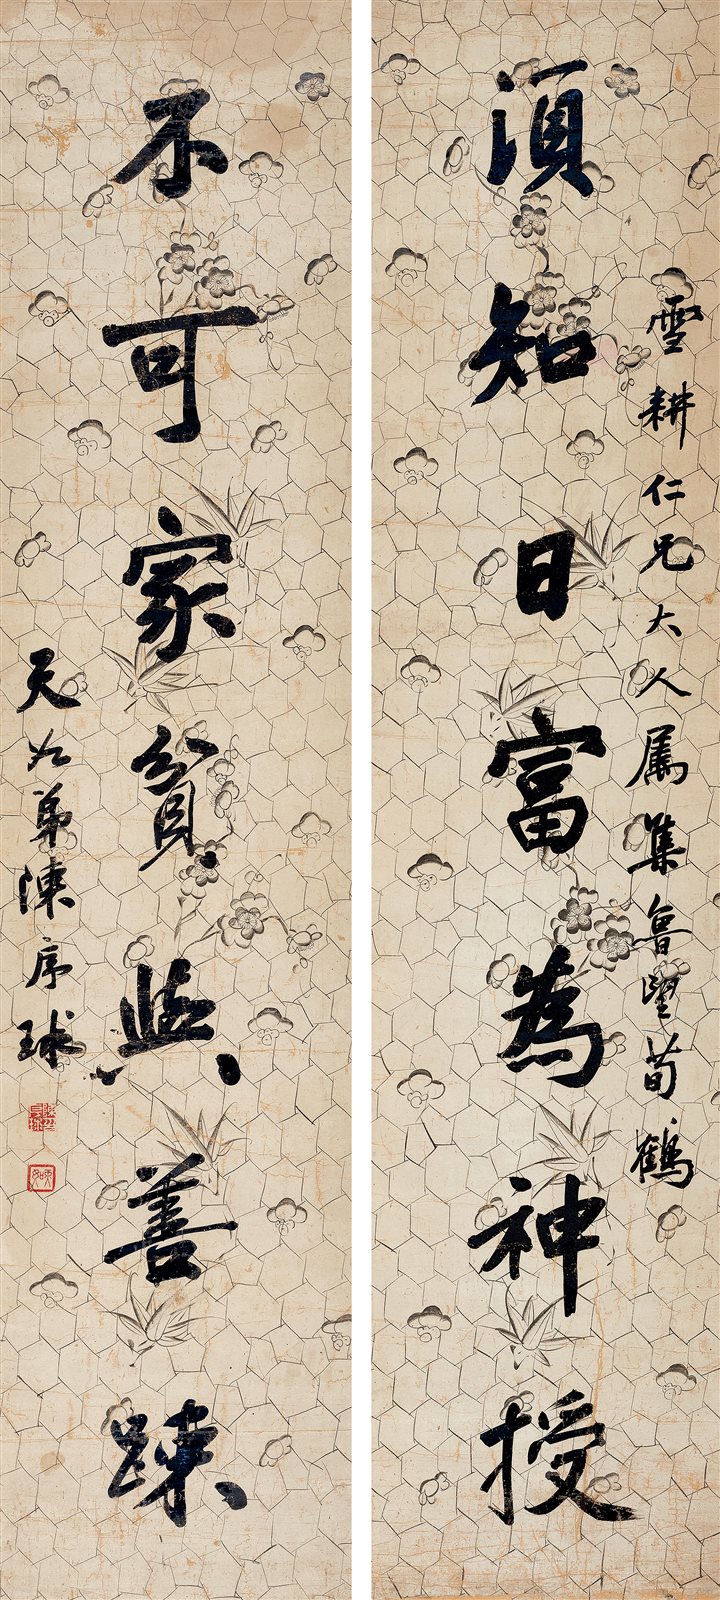 雪耕仁兄大人属集魯望荀鶴
湏知日富為神授
不可家貧與善踈
天如弟陳序球